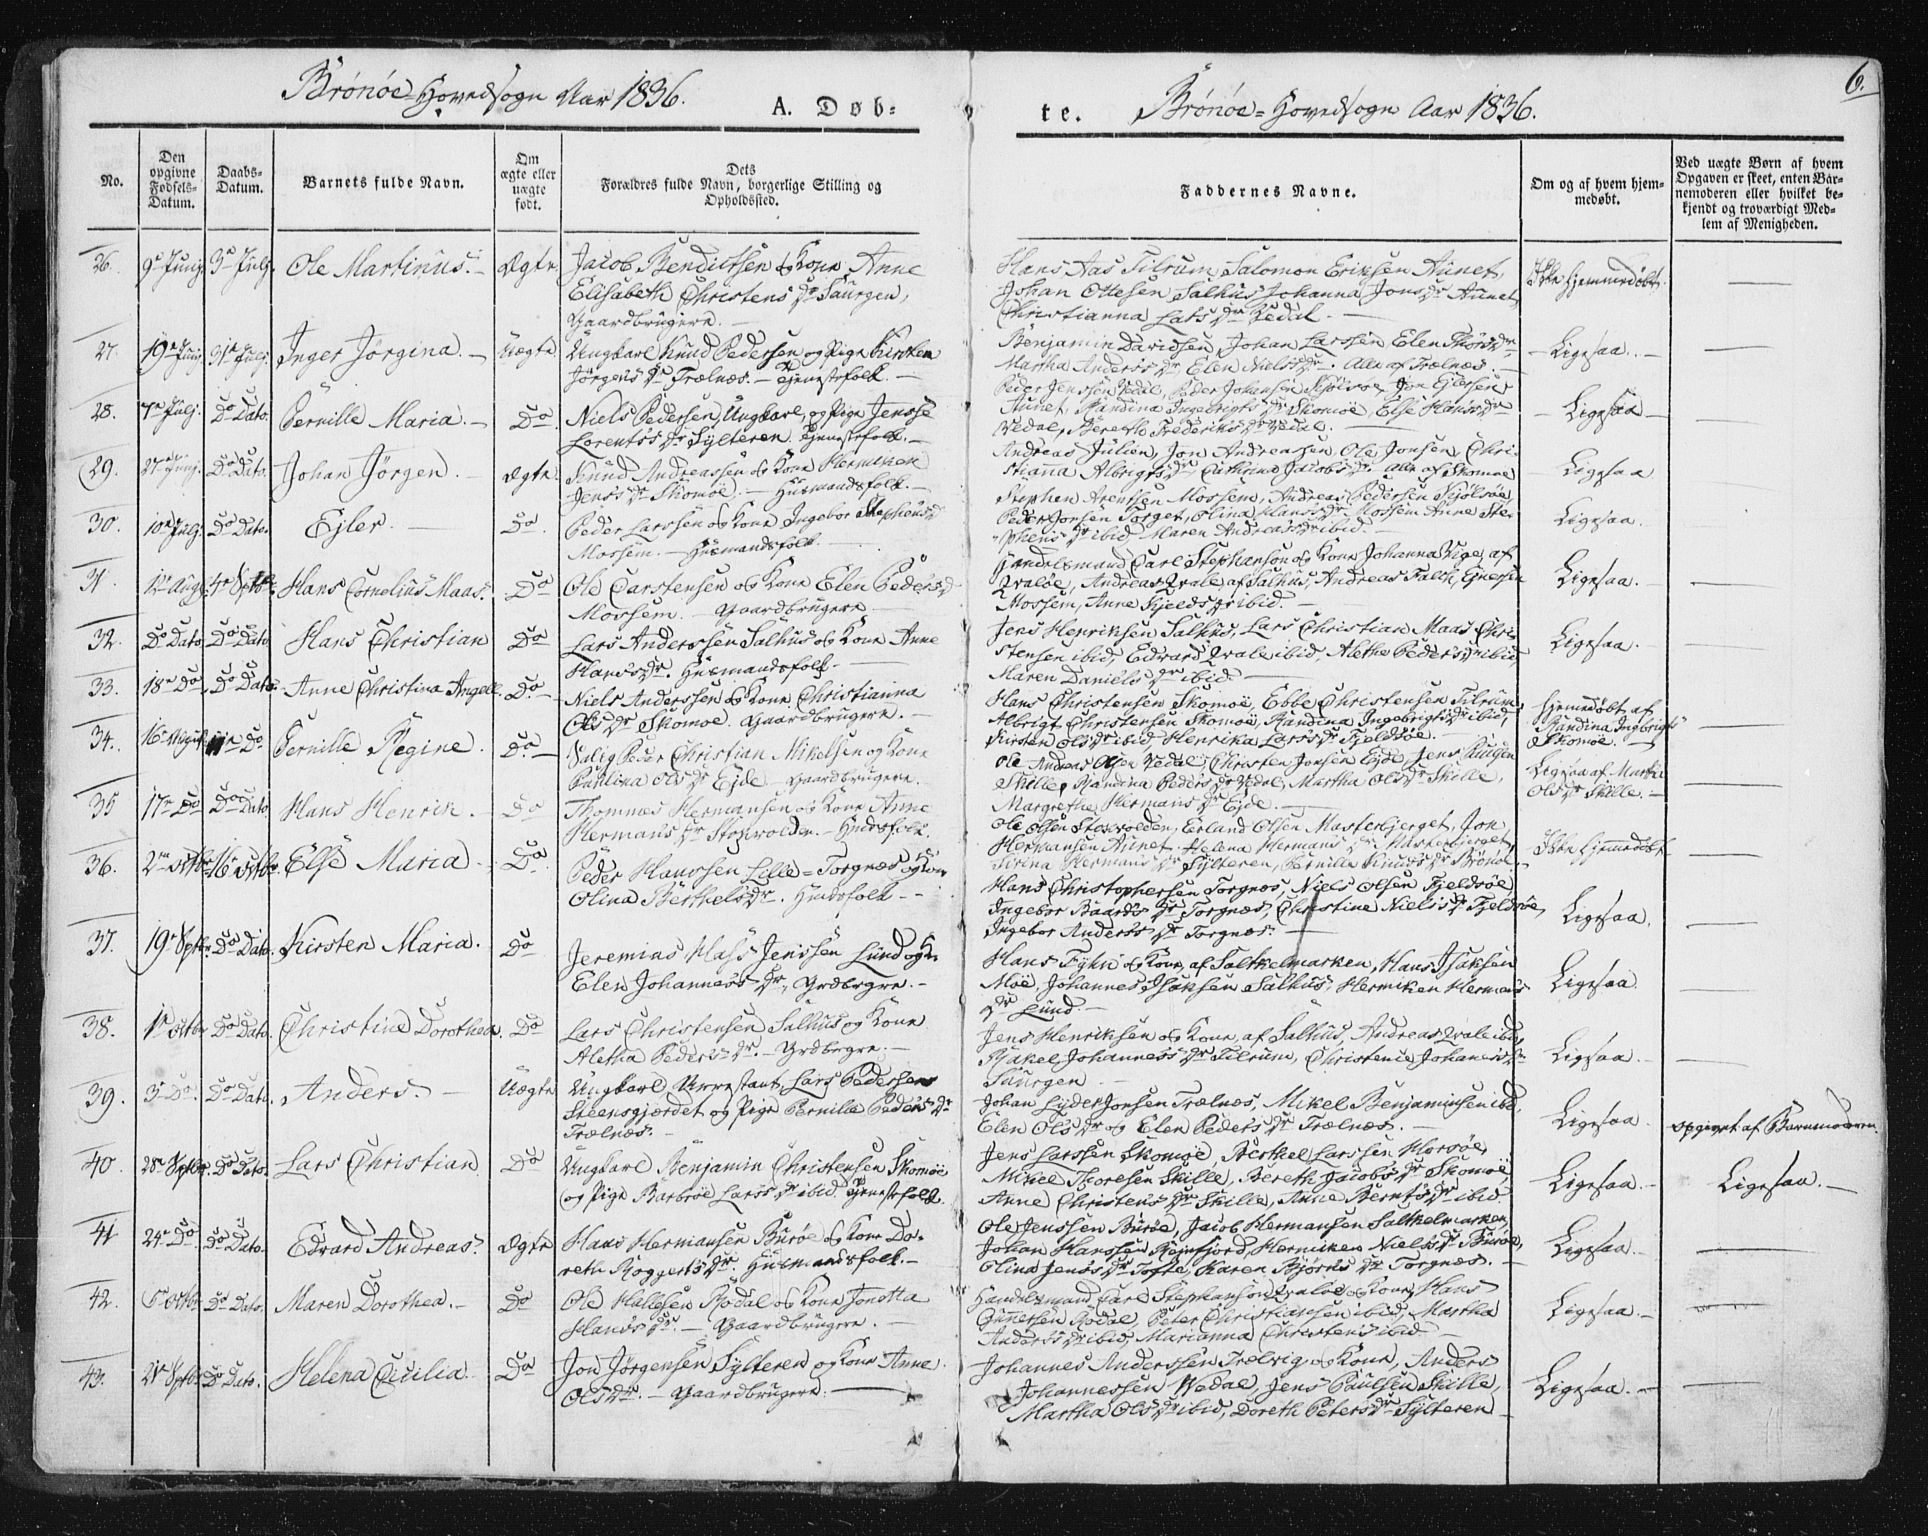 Brønøe-Hovedsogn Aar 1836.
A. Døb-
te.
Brønøe-Hovedsogn Aar 1836.
6.
No.
Den opgivne Fødsels-Datum.
Daabs-Datum.
Barnets fulde Navn.
Om ægte eller uægte født.
Dets Forældres fulde Navn, borgerlige Stilling og Opholdssted.
Faddernes Navne.
Om og af hvem hjem-
medøbt.
Ved uægte Børn af hvem
Opgaven er skeet, enten Bar-
nemoderen eller hvilket be-
kjendt og troværdigt Med-
lem af Menigheden.
26. 9de Junij 3de Julj. Ole Martinus. Ægte Jacob Bendictsen og Kone Anne
Elisabeth Christens Dr Saurgen,
Gaardbrugere.
Hans Aas Tilrum, Salomon Eriksen Aunet,
Johan Ottesen Salhus, Johanna Jons Dr Aunet,
Christianna Lars Dr Vedal.
Ikke hjemmedøbt.
27. 19de Junij 31te Julj. Inger Jörgina. Uægte Ungkarl Knud Pedersen og Pige Kirsten
Jörgens Dr Trælnæs. Tjenestefolk.
Benjamin Davidsen, Johan Larssen, Elen Thors Dr
Martha Anders Dr, Elen Niels Dr. Alle af Trælnæs.
Ligesaa.
28. 7de Julj. Do Dato. Pernille Maria. Do Niels Pedersen, Ungkarl, og Pige Jensse
Lorents Dr Sylteren. Tjenestefolk.
Peder Jenssen Vedal, Peder Johansen
Aunet, Randina Ingebrigts Dr Skomoe, Else Hans Dr
Vedal, Bereth Frederiks Dr Vedal.
Ligesaa
29. 27de Junj. Do Dato. Johan Jörgen. Ægte. Knud Andreassen og Kone Hermiken
Jens Dr Skomöe. Husmandsfolk.
Andreas Julien, Jon Andreassen, Ole Jonsen, Chri-
stianna Albrigts Dr, Cathrine Jacobs Dr. Alle af Skomoe
Ligesaa
30. 10de Julj. Do Dato. Ejler. Do. Peder Larssen og Kone Ingebor Stephens Dr
Mossem. Husmandsfolk.
Stephen Arentsen Mossem, Andreas Pedersen
Peder Jonsen Torget, Olina Hans Dr Mossem, Anne Ste-
phens Dr ibid, Maren Andreas Dr ibid.
Ligesaa.
31. 12te Augs. 4de Septbr. Hans Cornelius Maas. Do Ole Carstensen og Kone Elen Peders Dr
Mossem. Gaardbrugere
Handelsmand Carl Stephanson og Kone Johanna Vige af
Qvaløe, Andreas Qvale af Salhus, Andreas Falch,
Mossem, Anne Kjelds Dr ibid.
Ligesaa.
32. Do Dato Do Dato. Hans Christian Do Lars Anderssen Salhus og Kone Anne
Hans Dr. Husmandsfolk.
Jens Henriksen Salhus, Lars Christian Maas Chri-
stensen ibid, Edvard Qvale ibid, Aletha Peders Dr ibid,
Maren Daniels Dr ibid.
Ligesaa.
33. 18de Do, Do Dato. Anne Christina Angell. Do. Niels Anderssen og Kone Christianna
Ols Dr Skomoe. Gaardbrugere.
Hans Christensen Skomoe, Ebbe Christensen Tilrum,
Albrigt Christensen Skomoe, Randina Ingebrigts Dr ibid,
Kirsten Ols Dr ibid, Henrika Lars Dr Fjeldsöe.
Hjemmedøbt af
Randina Ingbrigts
Dr Skomoe.
34. 16de 11te Do. Pernille Regine. Do. Salig Peder Christian Mikelsen og Kone
Paulina Ols Dr Ejde. Gaardbrugere.
Ole Andreas Olsen Vedal, Christen Jonsen Ejde, Jens Paulsen
Skille, Randina Peders Dr Vedal, Martha Ols Dr Skille,
Margrethe Hermans Dr Ejde.
Ligesaa af Martha
Ols Dr Skille.
35 17de Do Do Dato. Hans Henrik. Do Thommas Hermansen og Kone Anne
Hermans Dr Storvolden. Husfolk.
Ole Olsen Storvolden, Erland Olsen Masterbjerget, Jon
Hermansen Aunet, Helena Hermans Dr Masterbjerget,
Hermans Dr Sylteren, Pernille Knuds Dr Brönöe.
Ikke hjemmedøbt
36. 2den Octbr 16de Octbr. Else Maria. Do. Peder Hanssen Lille-Torgnes og Kone
Olina Berthels Dr. Husfolk
Hans Christophersen Torgnes, Niels Olsen Fjeldsöe,
Ingebor Baards Dr Torgnæs, Christine Niels Dr Fjeldsöe,
Ingebor Anders Dr Torgnæs.
Ligesaa.
37. 19de Septbr. Do Dato. Kirsten Maria. Do Jeremias Maas Jenssen Lund og K.
Elen Johannes Dr, Grdbrgre.
Hans Fyhn og Kone af Saltkelmarken, Hans Isaksen
Moe, Johannes Isaksen Salhus, Hermiken Hermans
Dr Lund.
Ligesaa.
38. 1ste Octbr Do Dato. Christine Dorothea. Do Lars Christensen Salhus og Kone
Aletha Peders Dr. Grdbrgre.
Jens Henriksen og Kone af Salhus, Andreas Qvale ibid,
Rakel Johannes Dr Tilrum, Christenie Johannes Dr
Saurgen
Ligesaa.
39. 3de Do. Do Dato. Anders. Uægte Ungkarl Arrestant Lars Pedersen
Steensgjærdet og Pige Pernile Peders Dr
Trælnæs.
Johan Lyder Jonsen Trælnæs, Mikel Benjaminsen ibid,
Elen Ols Dr og Elen Peders Dr Trælnæs.
Ligesaa
opgivet af Barnemoderen.
40. 28de Septbr. Do Dato. Lars Christian. Do Ungkarl Benjamin Christensen Skomöe
og Pige Barbroe Lars Dr ibid. Tjenestefolk
Jens Larssen Skomoe, Berthel Larssen Horsöe,
Mikel Thoresen Skille, Bereth Jacobs Dr Skomöe,
Anne Christens Dr Skille, Anne Bernts Dr ibid
Ligesaa. Ligesaa.
41 24de Do Do Dato. Edvard Andreas. Ægte Hans Hermansen Buröe og Kone Do-
reth Roggerts Dr. Husmandsfolk.
Ole Jenssen Buröe, Jacob Hermansen Saltkelmarken,
Johan Hanssen Rejnfjord, Hermiken Niels Dr Buröe,
Olina Jens Dr Tofte, Karen Björns Dr Torgnæs.
Ligesaa.
42. Octbr Do Dato. Maren Dorothea. Do Ole Hallesen Rödal og Kone Jonetta
Hans Dr. Gaardbrugere.
Handelsmand Carl Stephanson Qvaløe og Kone, Hans
Gunnersen Rödal, Peter Christiansen ibid, Martha
Anders Dr ibid, Marianna Christens ibid.
Ligesaa.
43. 21de Septbr Do Dato. Helena Cicilia. Do Jon Jörgensen Sylteren og Kone Anne
Ols Dr. Gaardbrugere.
Johannes Anderssen Trælvig og Kone, Anders
Johannessen Vedal, Jens Paulsen Skille,
Martha Ols Dr ibid, Doreth Peters Dr Sylteren
Ligesaa.